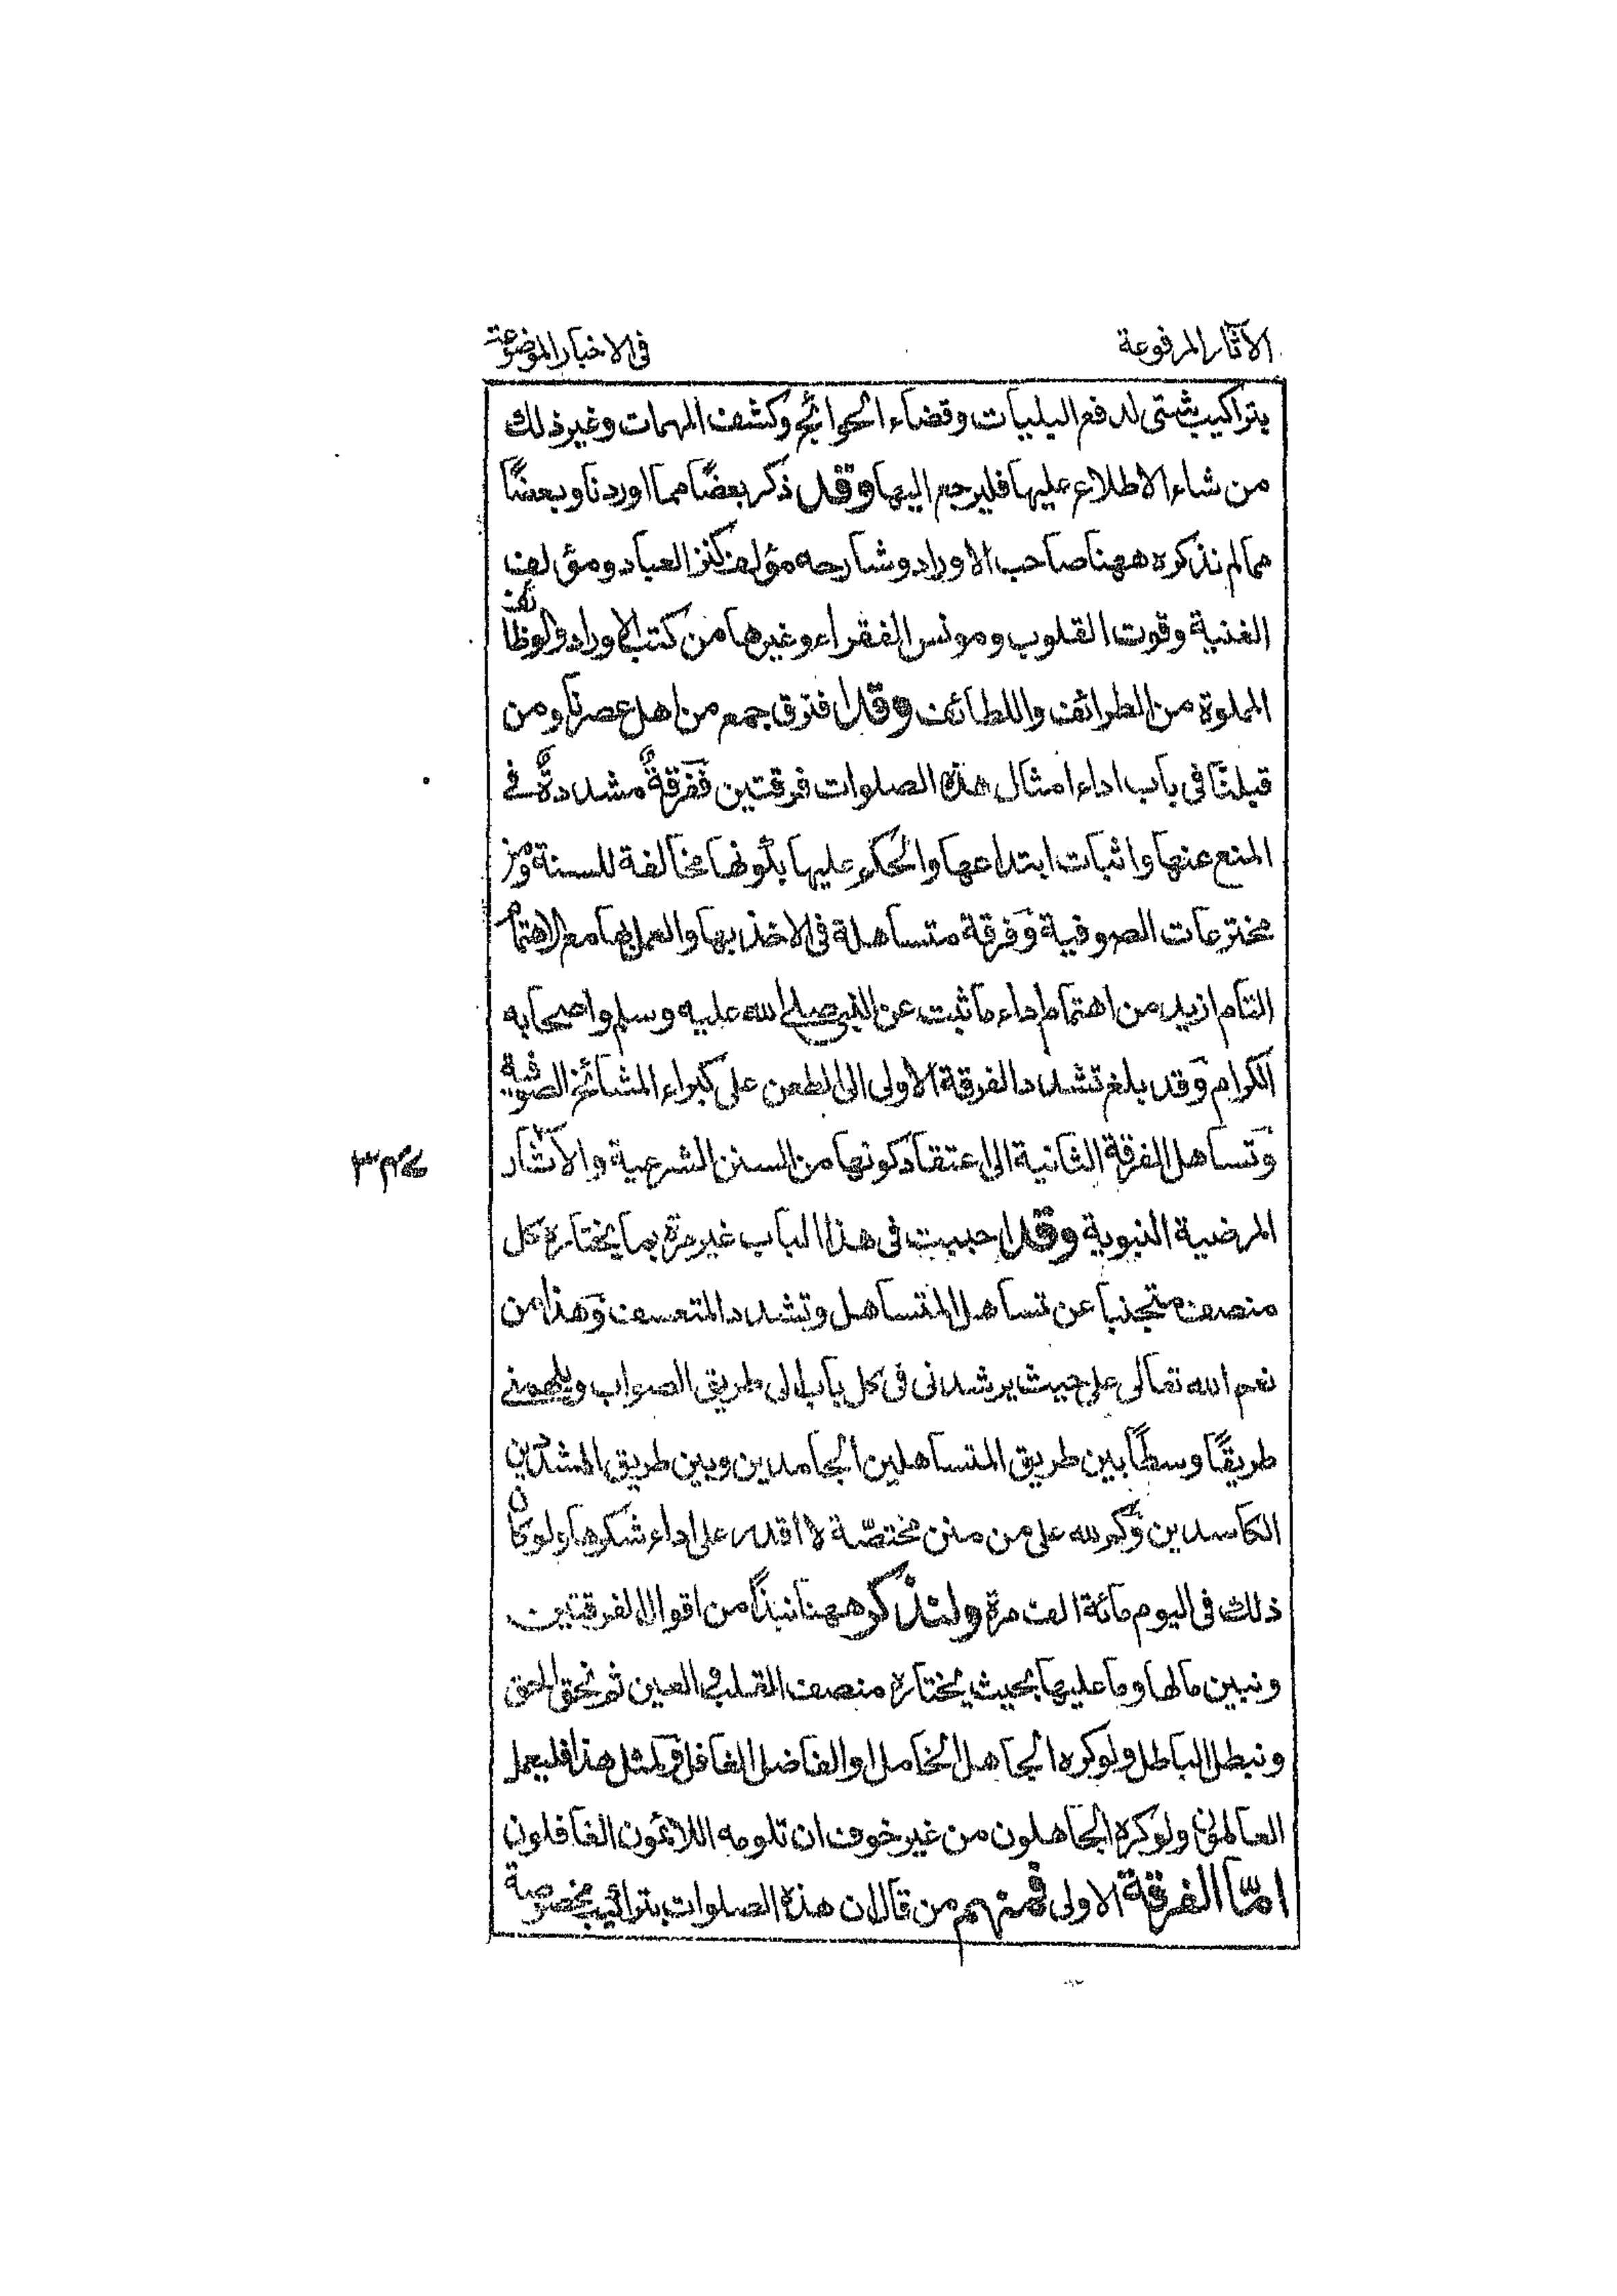 الآثار المرفوعة
فى الاخبار الموضوعة
بتراكيب شتى لدفع البليات وقضاء الحوائج وكشف المهمات وغير ذلك
من شاء الاطلاع عليها فليرجع اليها وقد ذكر بعضًا مما اوردنا وبعضًا
مما لم نذكره ههنا صاحب الاوراد وشارحه مؤلف كنز العباد ومؤلف
الغنية وقوت القلوب ومونس الفقراء وغيرها من كتب الاوراد والوظائف
المملوة من الطرائف واللطائف وقد افترق جمع من اهل عصرنا ومن
قبلنا فى باب اداء امثال هذه الصلوات فرقتين ففرقةٌ مشددةٌ فى
المنع عنها واثبات ابتداعها والحكم عليها بكونها مخالفة للسنة ومن
مخترعات الصوفية وفرقة متساهلة فى الاخذ بها والعمل بها مع الاهتمام
التام ازيد من اهتمام اداء ما ثبت عن النبى صلى الله عليه وسلم واصحابه
الكرام وقد بلغ تشدد الفرقة الاولى الى الطعن على كبراء المشائخ الصوفية
وتساهل الفرقة الثانية الى اعتقاد كونها من السنن الشرعية والآثار
المرضية النبوية وقد اجبت فى هذا الباب غير مرة بما يختاره كل
منصف متجنبا عن تساهل المتساهل وتشدد المتعسف وهذا من
نعم الله تعالى على حيث يرشدنى فى كل باب الى طريق الصواب ويلهمنى
طريقًا وسطًا بين طريق المتساهلين الجامدين وبين طريق المشددين
الكاسدين وكم لله على من منن مختصّة لا اقدر على اداء شكرها ولو كان
ذلك فى اليوم مائة الف مرة ولنذكر ههنا نبذًا من اقوال الفرقتين
ونبين ما لها وما عليها بحيث يختاره منصف القلب والعين ثم نحق الحق
ونبطل الباطل ولو كره الجاهل الخامل او الفاضل الغافل ولمثل هذا فليعمل
العالمون ولو كره الجاهلون من غير خوف ان تلومه اللائمون الغافلون
امّا الفرقة الاولى فمنهم من قال ان هذه الصلوات بتراكيب مخصوصة